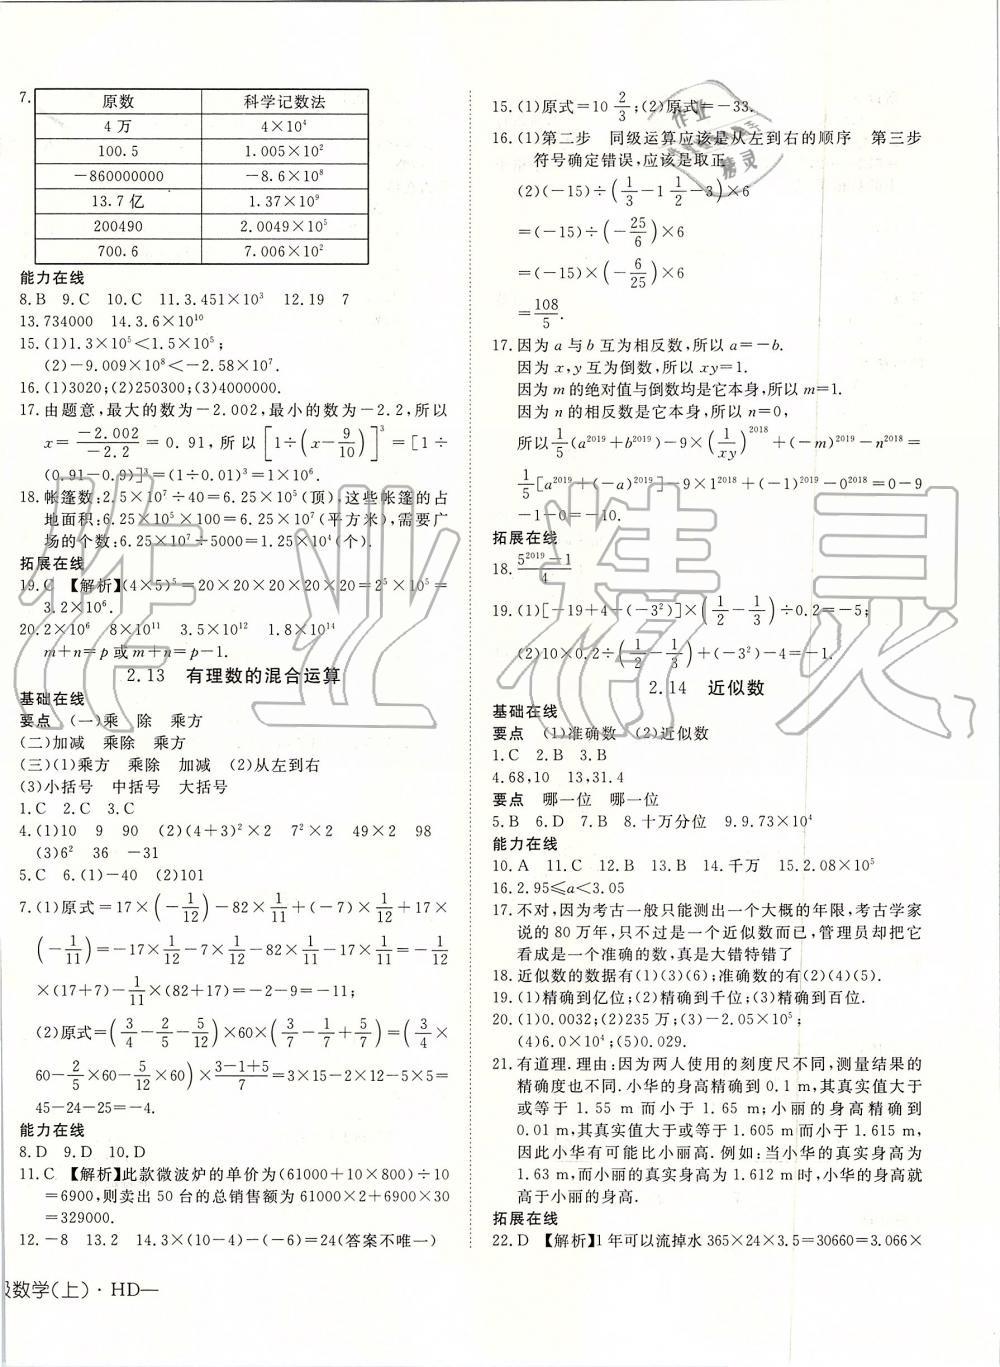 7.
原数 科学记数法
4万 4×10⁴
100.5 1.005×10²
-860000000 -8.6×10⁸
13.7亿 1.37×10⁹
200490 2.0049×10⁵
700.6 7.006×10²
能力在线
8.B 9.C 10.C 11.3.451×10³ 12.19 7
13.734000 14.3.6×10¹⁰
15.(1)1.3×10⁵<1.5×10⁵;
(2)-9.009×10⁸<-2.58×10⁷.
16.(1)3020;(2)250300;(3)4000000.
17.由题意,最大的数为-2.002,最小的数为-2.2,所以
x=\frac{-2.002}{-2.2}=0.91,所以[1÷(x-\frac{9}{10})]³=[1÷
(0.91-0.9)]³=(1÷0.01)³=1×10⁶.
18.帐篷数:2.5×10⁷÷40=6.25×10⁵(顶),这些帐篷的占
地面积:6.25×10⁵×100=6.25×10⁷(平方米),需要广
场的个数:6.25×10⁷÷5000=1.25×10⁴(个).
拓展在线
19.C 【解析】(4×5)⁵=20×20×20×20×20=2⁵×10⁵=
3.2×10⁶.
20.2×10⁶ 8×10¹¹ 3.5×10¹² 1.8×10¹⁴
m+n=p或m+n=p-1.
2.13 有理数的混合运算
基础在线
要点 (一)乘 除 乘方
(二)加减 乘除 乘方
(三)(1)乘方 乘除 加减 (2)从左到右
(3)小括号 中括号 大括号
1.C 2.C 3.C
4.(1)10 9 90 (2)(4+3)²×2 7²×2 49×2 98
(3)6² 36 -31
5.C 6.(1)-40 (2)101
7.(1)原式=17×(-\frac{1}{12})-82×\frac{1}{11}+(-7)×\frac{1}{12}+17×
(-\frac{1}{11})=-17×\frac{1}{12}-7×\frac{1}{12}-82×\frac{1}{11}-17×\frac{1}{11}=-\frac{1}{12}
×(17+7)-\frac{1}{11}×(82+17)=-2-9=-11;
(2)原式=(\frac{3}{4}-\frac{2}{5}-\frac{5}{12})×60×(\frac{3}{7}-\frac{1}{7}+\frac{5}{7})=(\frac{3}{4}×
60-\frac{2}{5}×60-\frac{5}{12}×60)×\frac{3-1+5}{7}=3×15-2×12-5×5=
45-24-25=-4.
能力在线
8.D 9.D 10.D
11.C 【解析】此款微波炉的单价为(61000+10×800)÷10
=6900,则卖出50台的总销售额为61000×2+6900×30
=329000.
12.-8 13.2 14.3×(10-4)-(-6)=24(答案不唯一)
级数学(上)·HD—
15.(1)原式=10\frac{2}{3};(2)原式=-33.
16.(1)第二步 同级运算应该是从左到右的顺序 第三步
符号确定错误,应该是取正
(2)(-15)÷(\frac{1}{3}-1\frac{1}{2}-3)×6
=(-15)÷(-\frac{25}{6})×6
=(-15)×(-\frac{6}{25})×6
=\frac{108}{5}.
17.因为a与b互为相反数,所以a=-b.
因为x,y互为倒数,所以xy=1.
因为m的绝对值与倒数均是它本身,所以m=1.
因为n的相反数是它本身,所以n=0,
所以\frac{1}{5}(a²⁰¹⁹+b²⁰¹⁹)-9×(\frac{1}{xy})²⁰¹⁸+(-m)²⁰¹⁹-n²⁰¹⁸=
\frac{1}{5}[a²⁰¹⁹+(-a)²⁰¹⁹]-9×1²⁰¹⁸+(-1)²⁰¹⁹-0²⁰¹⁸=0-9
-1-0=-10.
拓展在线
18.\frac{5²⁰¹⁹-1}{4}
19.(1)[-19+4+(-3²)]×(\frac{1}{2}-\frac{1}{3})÷0.2=-5;
(2)10×0.2÷(\frac{1}{2}-\frac{1}{3})+(-3²)-4=-1.
2.14 近似数
基础在线
要点 (1)准确数 (2)近似数
1.C 2.B 3.B
4.68,10 13,31.4
要点 哪一位 哪一位
5.B 6.D 7.B 8.十万分位 9.9.73×10⁴
能力在线
10.A 11.C 12.B 13.B 14.千万 15.2.08×10⁵
16.2.95≤a<3.05
17.不对,因为考古一般只能测出一个大概的年限,考古学家
说的80万年,只不过是一个近似数而已,管理员却把它
看成是一个准确的数,真是大错特错了
18.近似数的数据有(1)(3)(6);准确数的有(2)(4)(5).
19.(1)精确到亿位;(2)精确到千位;(3)精确到百位.
20.(1)0.0032;(2)235万;(3)-2.05×10⁵;
(4)6.0×10⁴;(5)0.029.
21.有道理.理由:因为两人使用的刻度尺不同,测量结果的
精确度也不同.小华的身高精确到0.1 m,其真实值大于
或等于1.55 m而小于1.65 m;小丽的身高精确到
0.01 m,其真实值大于或等于1.605 m而小于1.615 m,
因此小华有可能比小丽高.例如:当小华的真实身高为
1.63 m,而小丽的真实身高为1.612 m时,小华的身高就
高于小丽的身高.
拓展在线
22.D 【解析】1年可以流掉水365×24×3.5=30660=3.066×
作业精灵